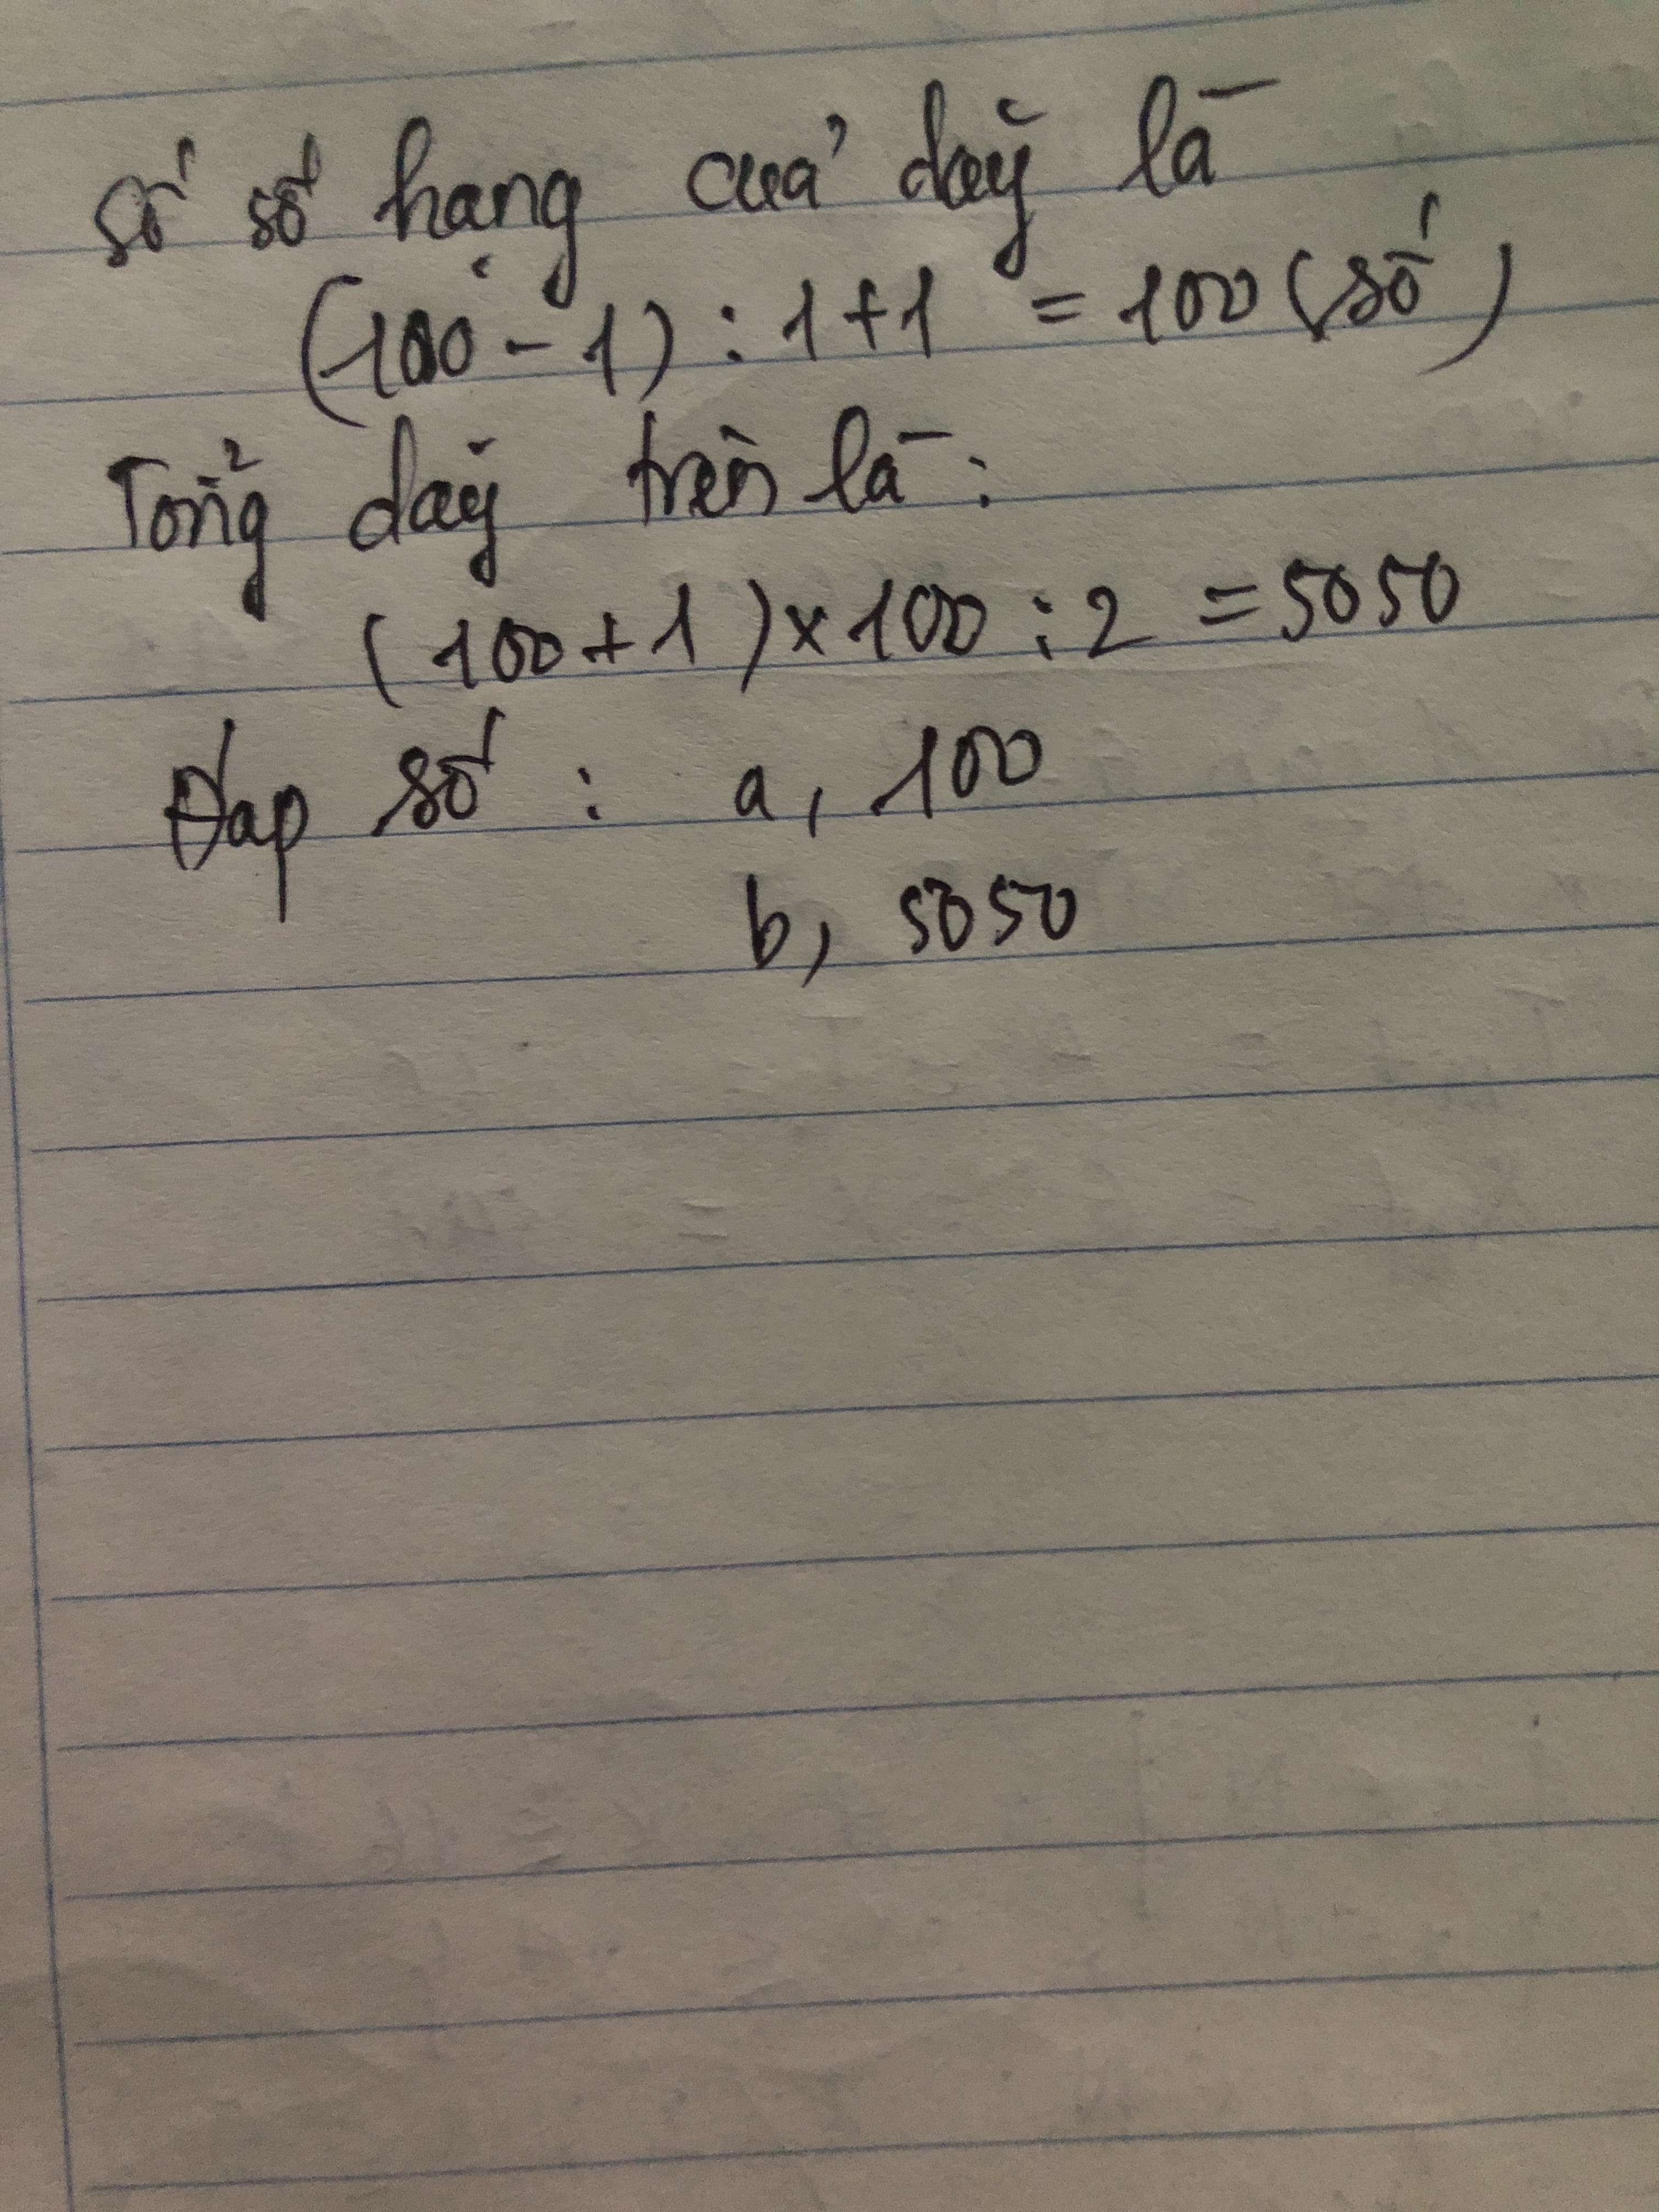 Số số hạng của dãy là
(100 - 1) : 1 + 1 = 100 (số)
Tổng dãy trên là :
(100 + 1) × 100 : 2 = 5050
Đáp số : a, 100
b, 5050